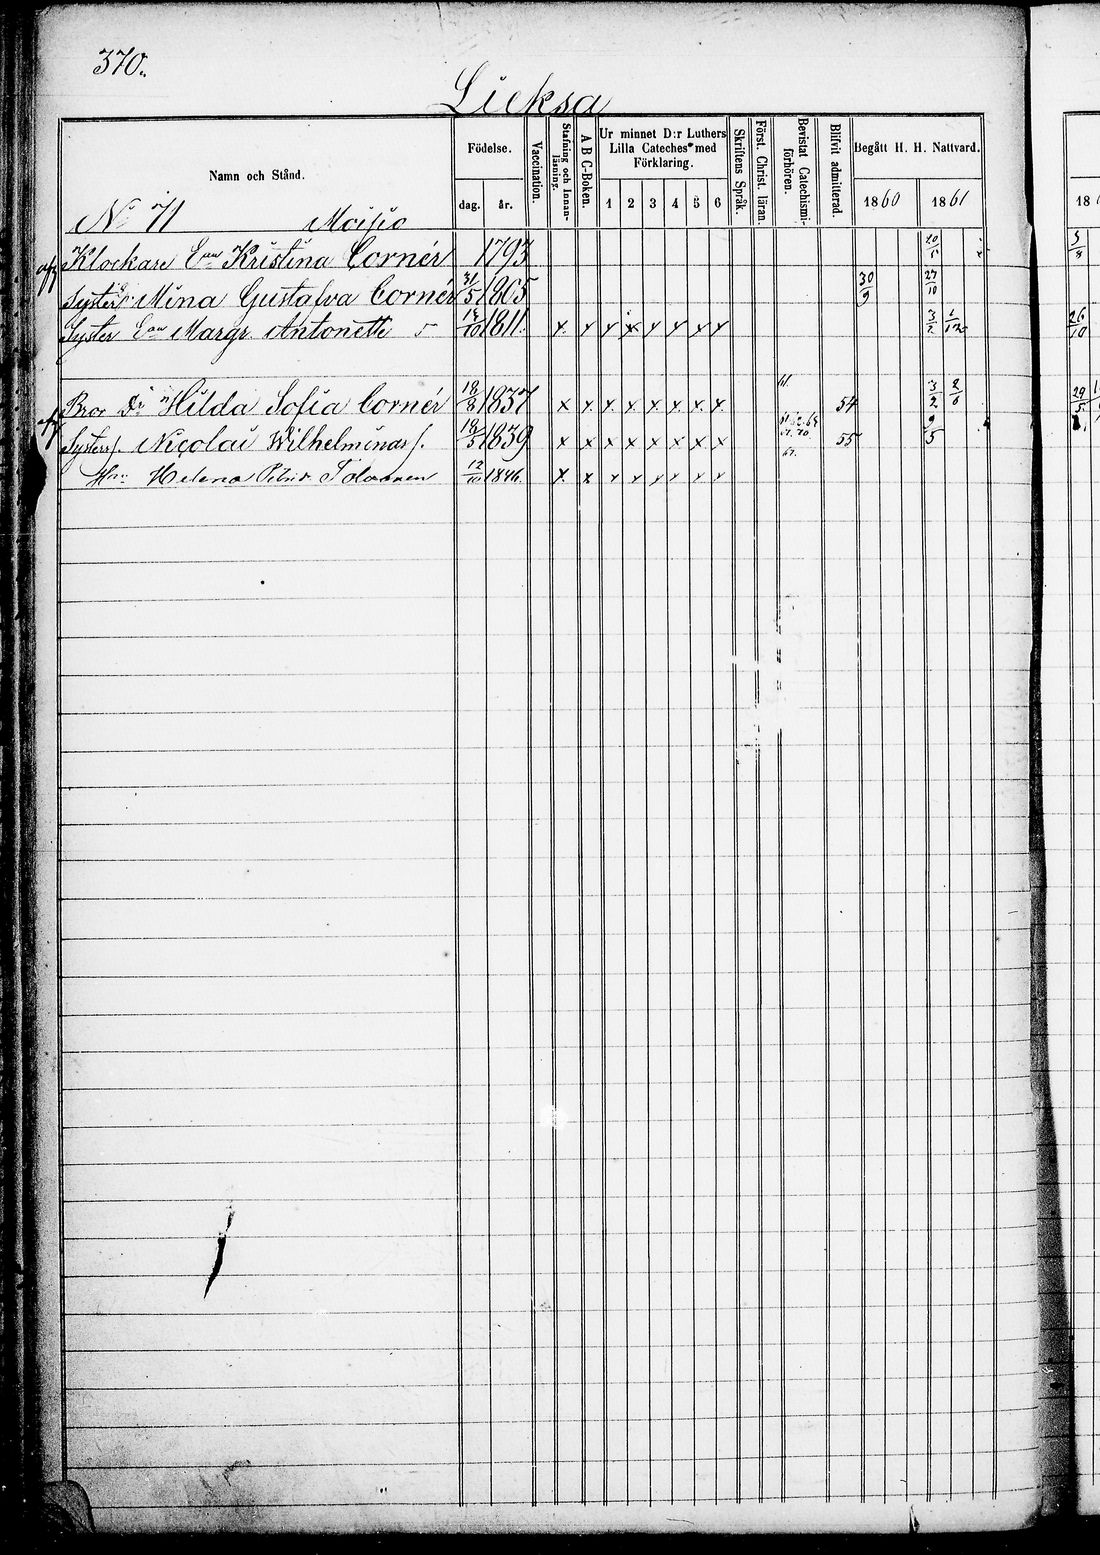 370.
Lieksa
Namn och Stånd.
Födelse.
dag. år.
Vaccination.
Stafning och Innanläsning.
A B C-Boken.
Ur minnet D:r Luthers
Lilla Cateches med
Förklaring.
1 2 3 4 5 6
Skriftens Språk.
Först. Christ. läran.
Bevistat Catechismiförhören.
Blifvit admitterad.
Begått H. H. Nattvard.
1860 1861
No 71 Moisio
Klockare Kristina Cornér 1793 20/5
Syster Mina Gustafva Cornér 31/5 1805 30/9 27/10
Syster Margr Antonette 14/10 1811. x x x x x x x x 3/2 1/12 26/10
Bror Hilda Sofia Cornér 18/8 1837 x x x x x x x x 61. 54 3/2
Systers. Nicolai Wilhelminas s. 18/5 1839 x x x x x x x x 55 9/5
Helena 12/10 1846. x x x x x x x x